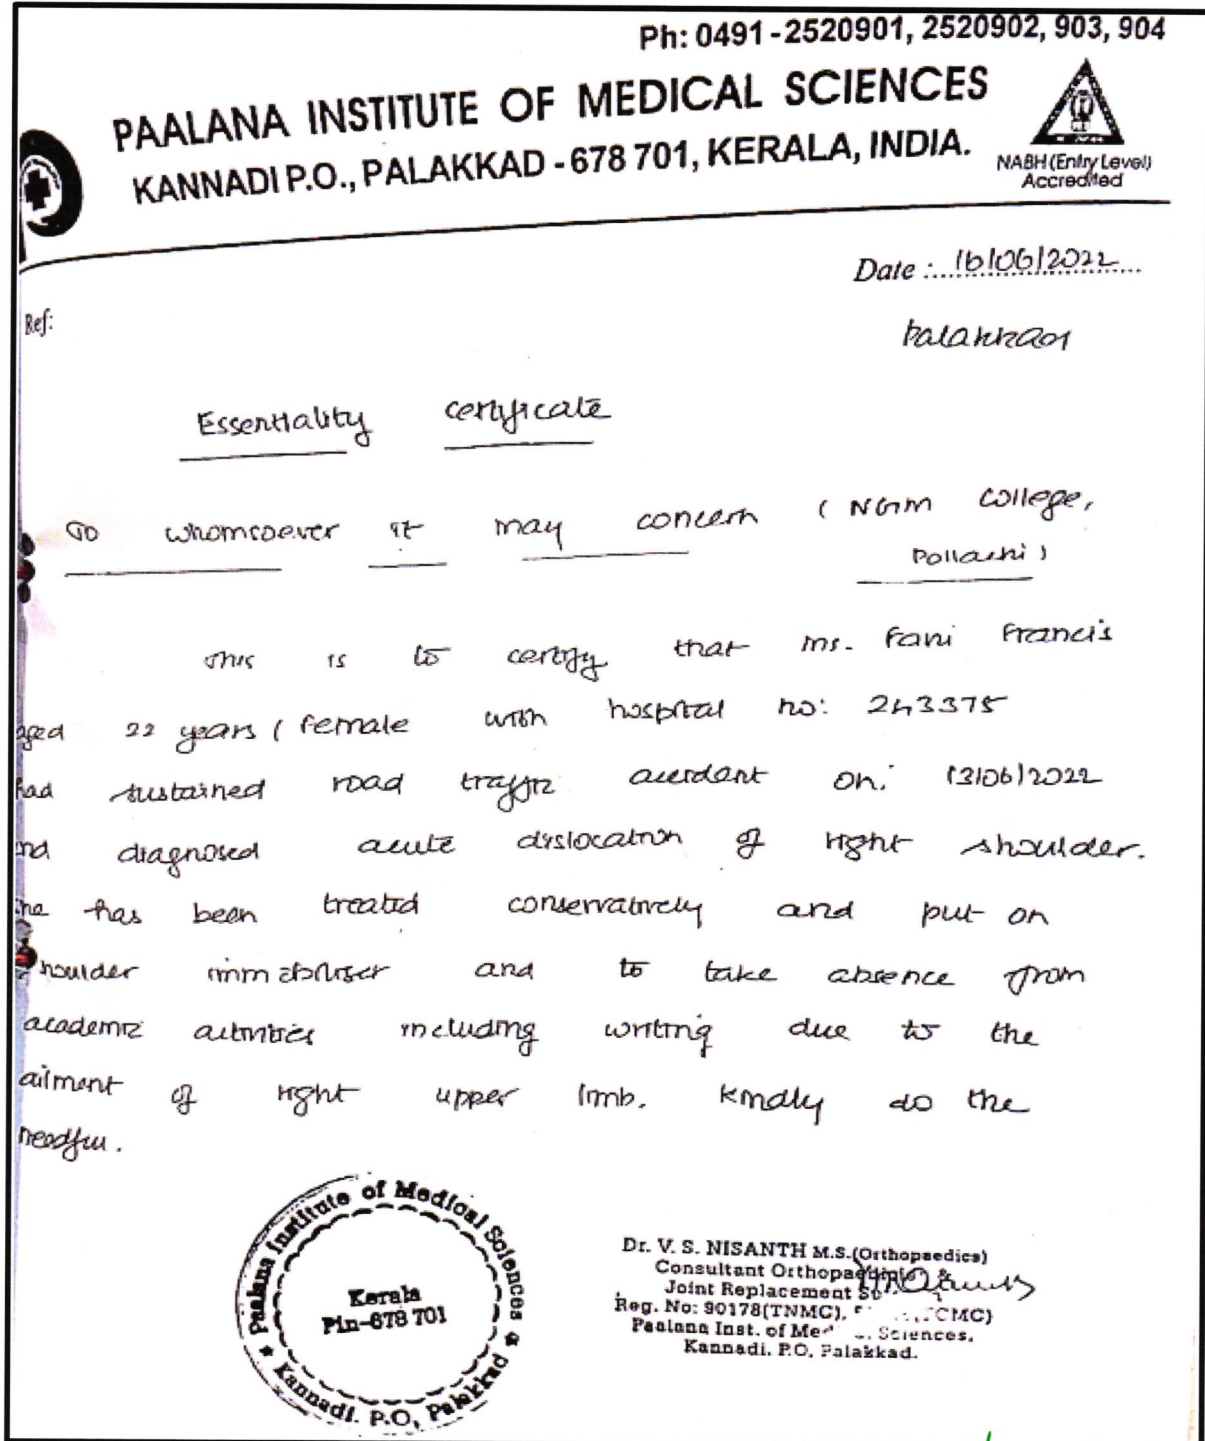 Ph: 0491-2520901, 2520902, 903, 904
PAALANA INSTITUTE OF MEDICAL SCIENCES
KANNADI P.O., PALAKKAD - 678 701, KERALA, INDIA.
NABH (Entry Level)
Accredited
Date : 16/06/2022
Ref:
Palakkad
Essentiality certificate
To whomsoever it may concern ( NGM college,
Pollachi )
This is to certify that Ms. Fani Francis
aged 22 years ( female with hospital no: 243375
had sustained road traffic accident on: 13/06/2022
and diagnosed acute dislocation of right shoulder.
She has been treated conservatively and put on
shoulder immobiliser and to take absence from
academic activities including writing due to the
ailment of right upper limb. Kindly do the
needful.
Paalana Institute of Medical Sciences
Kerala
Pin-678 701
Kannadi. P.O, Palakkad
Dr. V. S. NISANTH M.S.(Orthopaedics)
Consultant Orthopaedic &
Joint Replacement
Reg. No: 90178(TNMC),
Paalana Inst. of Sciences,
Kannadi. P.O, Palakkad.